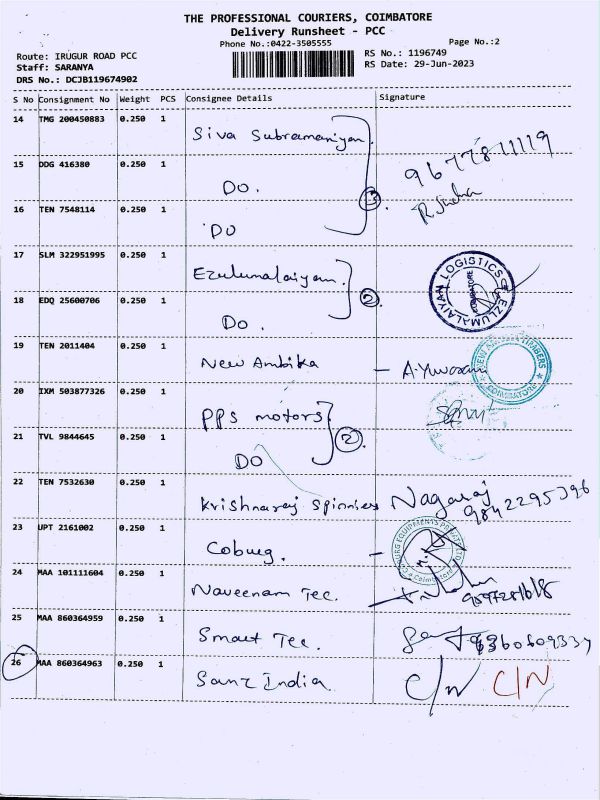 THE PROFESSIONAL COURIERS, COIMBATORE
Delivery Runsheet - PCC
Phone No.:0422-3505555 Page No.:2
Route: IRUGUR ROAD PCC RS No.: 1196749
Staff: SARANYA RS Date: 29-Jun-2023
DRS No.: DCJB119674902
S No Consignment No Weight PCS Consignee Details Signature
14 TMG 200450883 0.250 1 Siva Subramaniyan 9677811119
15 DDG 416380 0.250 1 DO.
3
16 TEN 7548114 0.250 1 DO
17 SLM 322951995 0.250 1 Ezulumalaiyam. EZLUMALAIYAN LOGISTICS COIMBATORE
2
18 EDQ 25600706 0.250 1 DO.
19 TEN 2011404 0.250 1 New Ambika - A.Yuvaram COIMBATORE
20 IXM 503877326 0.250 1 PPS motors
2
21 TVL 9844645 0.250 1 DO
22 TEN 7532630 0.250 1 Krishnaraj Spinners Nagaraj 9842295396
23 UPT 2161002 0.250 1 Coburg. - EQUIPMENTS PRIVATE LTD Coimbatore
24 MAA 101111604 0.250 1 Naveenam Tec.
25 MAA 860364959 0.250 1 Smart Tec.
26 MAA 860364963 0.250 1 Sanz India C/N C/N